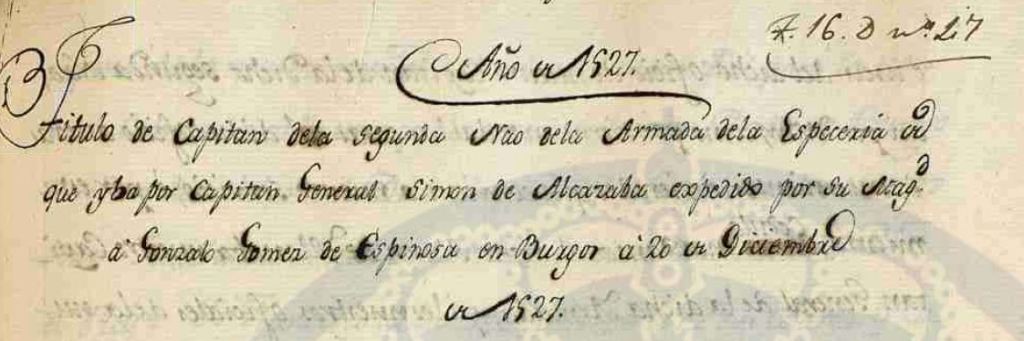 T. 16. D nº. 27
Año de 1527.
Titulo de Capitan dela segunda Nao dela Armada dela Especeria de
que yba por Capitan General Simon de Alcazaba expedido por su Magd.
à Gonzalo Gomez de Espinosa en Burgos à 20 de Diciembre
de 1527.